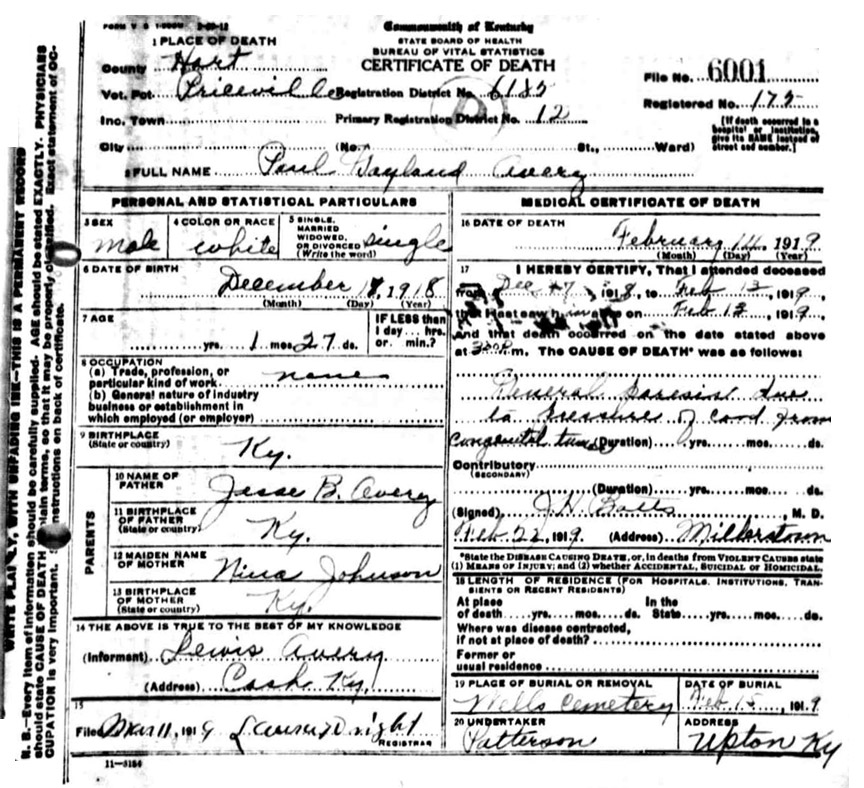 FORM V. S. 1-
Commonwealth of Kentucky
STATE BOARD OF HEALTH
BUREAU OF VITAL STATISTICS
CERTIFICATE OF DEATH
1 PLACE OF DEATH
County Hart
Vot. Pct. Priceville Registration District No. 6185
Inc. Town Primary Registration District No. 12
City (No. St., Ward)
File No. 6001
Registered No. 175
[If death occurred in a
hospital or institution,
give its NAME instead of
street and number.]
2 FULL NAME Paul Wayland Avery
PERSONAL AND STATISTICAL PARTICULARS
3 SEX male
4 COLOR OR RACE white
5 SINGLE, MARRIED WIDOWED, OR DIVORCED (Write the word) single
6 DATE OF BIRTH
December 18, 1918
(Month) (Day) (Year)
7 AGE
yrs. 1 mos. 27 ds.
IF LESS than
1 day ... hrs.
or min.?
8 OCCUPATION
(a) Trade, profession, or
particular kind of work none
(b) General nature of industry
business or establishment in
which employed (or employer)
9 BIRTHPLACE
(State or country) Ky.
PARENTS
10 NAME OF FATHER Jesse B. Avery
11 BIRTHPLACE OF FATHER (State or country) Ky.
12 MAIDEN NAME OF MOTHER Nina Johnson
13 BIRTHPLACE OF MOTHER (State or country) Ky.
14 THE ABOVE IS TRUE TO THE BEST OF MY KNOWLEDGE
(Informant) Lewis Avery
(Address) Cash Ky.
15
Filed Mar 11, 1919
REGISTRAR
11—3184
MEDICAL CERTIFICATE OF DEATH
16 DATE OF DEATH
February 14, 1919
(Month) (Day) (Year)
17 I HEREBY CERTIFY, That I attended deceased
from Dec 1918, to Feb 13, 1919,
that I last saw h im alive on Feb 13, 1919
and that death occurred on the date stated above
at m. The CAUSE OF DEATH* was as follows:
General paresis due
to pressure of cord from
congenital (Duration) yrs. mos. ds.
Contributory
(SECONDARY)
(Duration) yrs. mos. ds.
(Signed) J. H. Batts, M. D.
Feb. 22, 1919 (Address) Millerstown
*State the DISEASE CAUSING DEATH, or, in deaths from VIOLENT CAUSES state
(1) MEANS OF INJURY; and (2) whether ACCIDENTAL, SUICIDAL or HOMICIDAL.
18 LENGTH OF RESIDENCE (FOR HOSPITALS, INSTITUTIONS, TRAN-
SIENTS OR RECENT RESIDENTS)
At place In the
of death yrs. mos. ds. State yrs. mos. ds.
Where was disease contracted,
if not at place of death?
Former or
usual residence
19 PLACE OF BURIAL OR REMOVAL Wells Cemetery
DATE OF BURIAL Feb 15, 1919
20 UNDERTAKER Patterson
ADDRESS Upton Ky
WRITE PLAINLY, WITH UNFADING INK—THIS IS A PERMANENT RECORD
N. B.—Every item of information should be carefully supplied. AGE should be stated EXACTLY. PHYSICIANS
should state CAUSE OF DEATH in plain terms, so that it may be properly classified. Exact statement of OC-
CUPATION is very important. instructions on back of certificate.